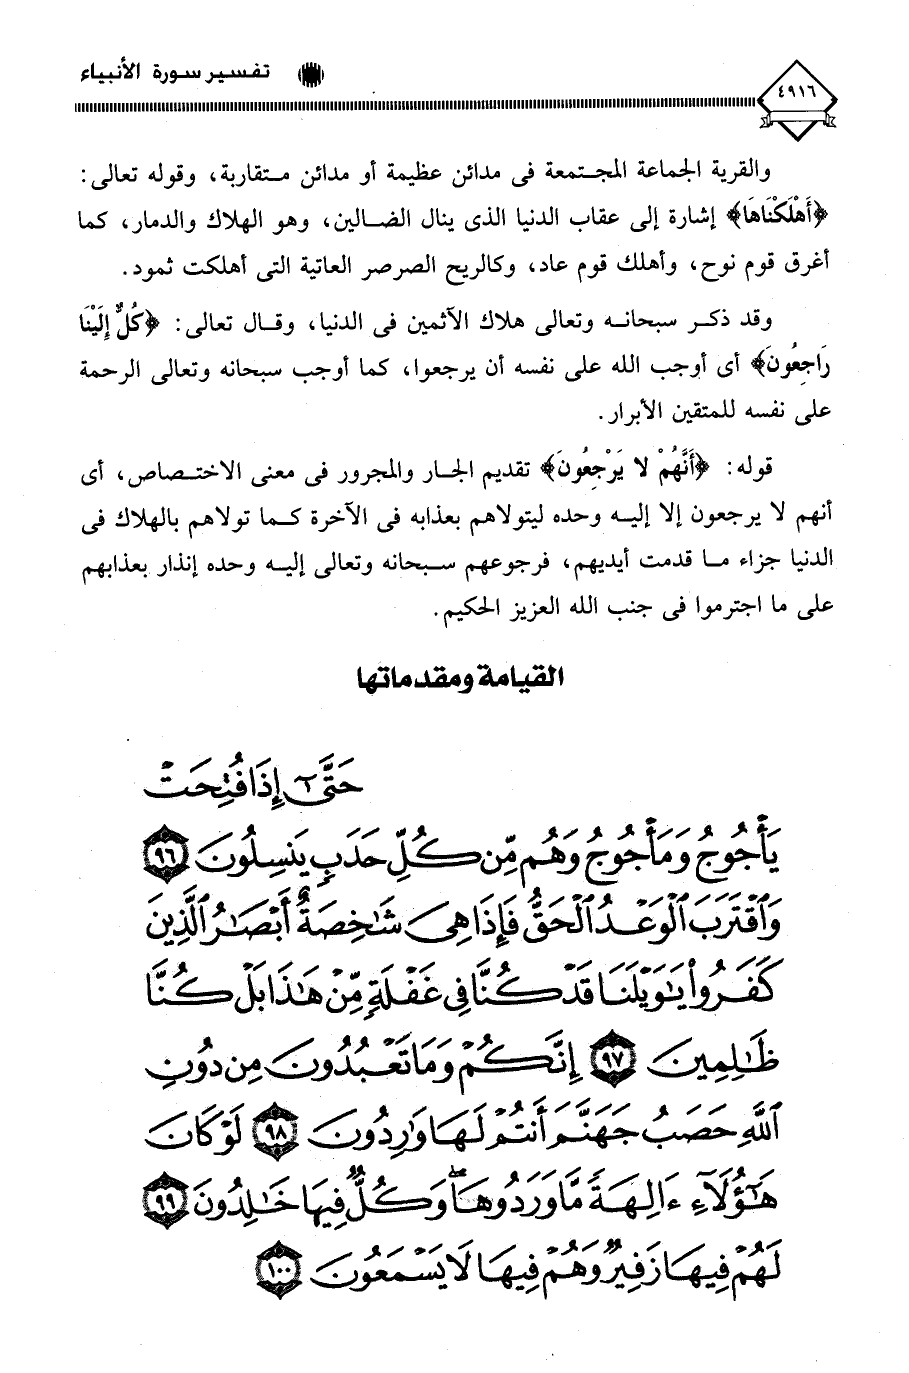 تفسير سورة الأنبياء
٤٩١٦
والقرية الجماعة المجتمعة فى مدائن عظيمة أو مدائن متقاربة، وقوله تعالى:
﴿أَهْلَكْنَاهَا﴾ إشارة إلى عقاب الدنيا الذى ينال الضالين، وهو الهلاك والدمار، كما
أغرق قوم نوح، وأهلك قوم عاد، وكالريح الصرصر العاتية التى أهلكت ثمود.
وقد ذكر سبحانه وتعالى هلاك الآثمين فى الدنيا، وقال تعالى: ﴿كُلٌّ إِلَيْنَا
رَاجِعُونَ﴾ أى أوجب الله على نفسه أن يرجعوا، كما أوجب سبحانه وتعالى الرحمة
على نفسه للمتقين الأبرار.
قوله: ﴿أَنَّهُمْ لا يَرْجِعُونَ﴾ تقديم الجار والمجرور فى معنى الاختصاص، أى
أنهم لا يرجعون إلا إليه وحده ليتولاهم بعذابه فى الآخرة كما تولاهم بالهلاك فى
الدنيا جزاء ما قدمت أيديهم، فرجوعهم سبحانه وتعالى إليه وحده إنذار بعذابهم
على ما اجترموا فى جنب الله العزيز الحكيم.
القيامة ومقدماتها
حَتَّىٰٓ إِذَا فُتِحَتْ
يَأْجُوجُ وَمَأْجُوجُ وَهُم مِّن كُلِّ حَدَبٍ يَنسِلُونَ ٩٦
وَٱقْتَرَبَ ٱلْوَعْدُ ٱلْحَقُّ فَإِذَا هِىَ شَٰخِصَةٌ أَبْصَٰرُ ٱلَّذِينَ
كَفَرُوا۟ يَٰوَيْلَنَا قَدْ كُنَّا فِى غَفْلَةٍ مِّنْ هَٰذَا بَلْ كُنَّا
ظَٰلِمِينَ ٩٧ إِنَّكُمْ وَمَا تَعْبُدُونَ مِن دُونِ
ٱللَّهِ حَصَبُ جَهَنَّمَ أَنتُمْ لَهَا وَٰرِدُونَ ٩٨ لَوْ كَانَ
هَٰٓؤُلَآءِ ءَالِهَةً مَّا وَرَدُوهَا ۖ وَكُلٌّ فِيهَا خَٰلِدُونَ ٩٩
لَهُمْ فِيهَا زَفِيرٌ وَهُمْ فِيهَا لَا يَسْمَعُونَ ١٠٠